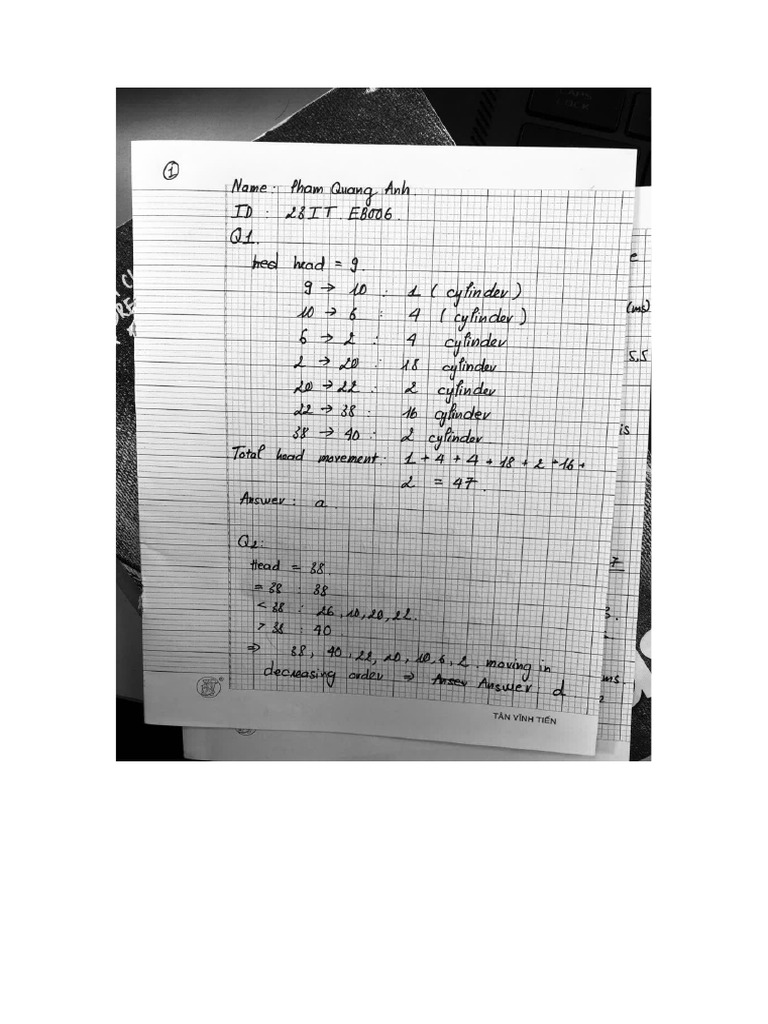 ①
Name: Pham Quang Anh
ID : 28IT.EB006.
Q1.
head = 9.
9 → 10 : 1 (cylinder)
10 → 6 : 4 (cylinder)
6 → 2 : 4 cylinder
2 → 20 : 18 cylinder
20 → 22 : 2 cylinder
22 → 38 : 16 cylinder
38 → 40 : 2 cylinder
Total head movement: 1 + 4 + 4 + 18 + 2 + 16 +
2 = 47.
Answer: a.
Q2:
Head = 38
= 38 : 38
< 38 : 26, 10, 20, 22.
> 38 : 40
⇒ 38, 40, 22, 20, 10, 6, 2. moving in
decreasing order ⇒ Answer d
TÂN VĨNH TIẾN
(ms)
5,5
is
7
3.
ms